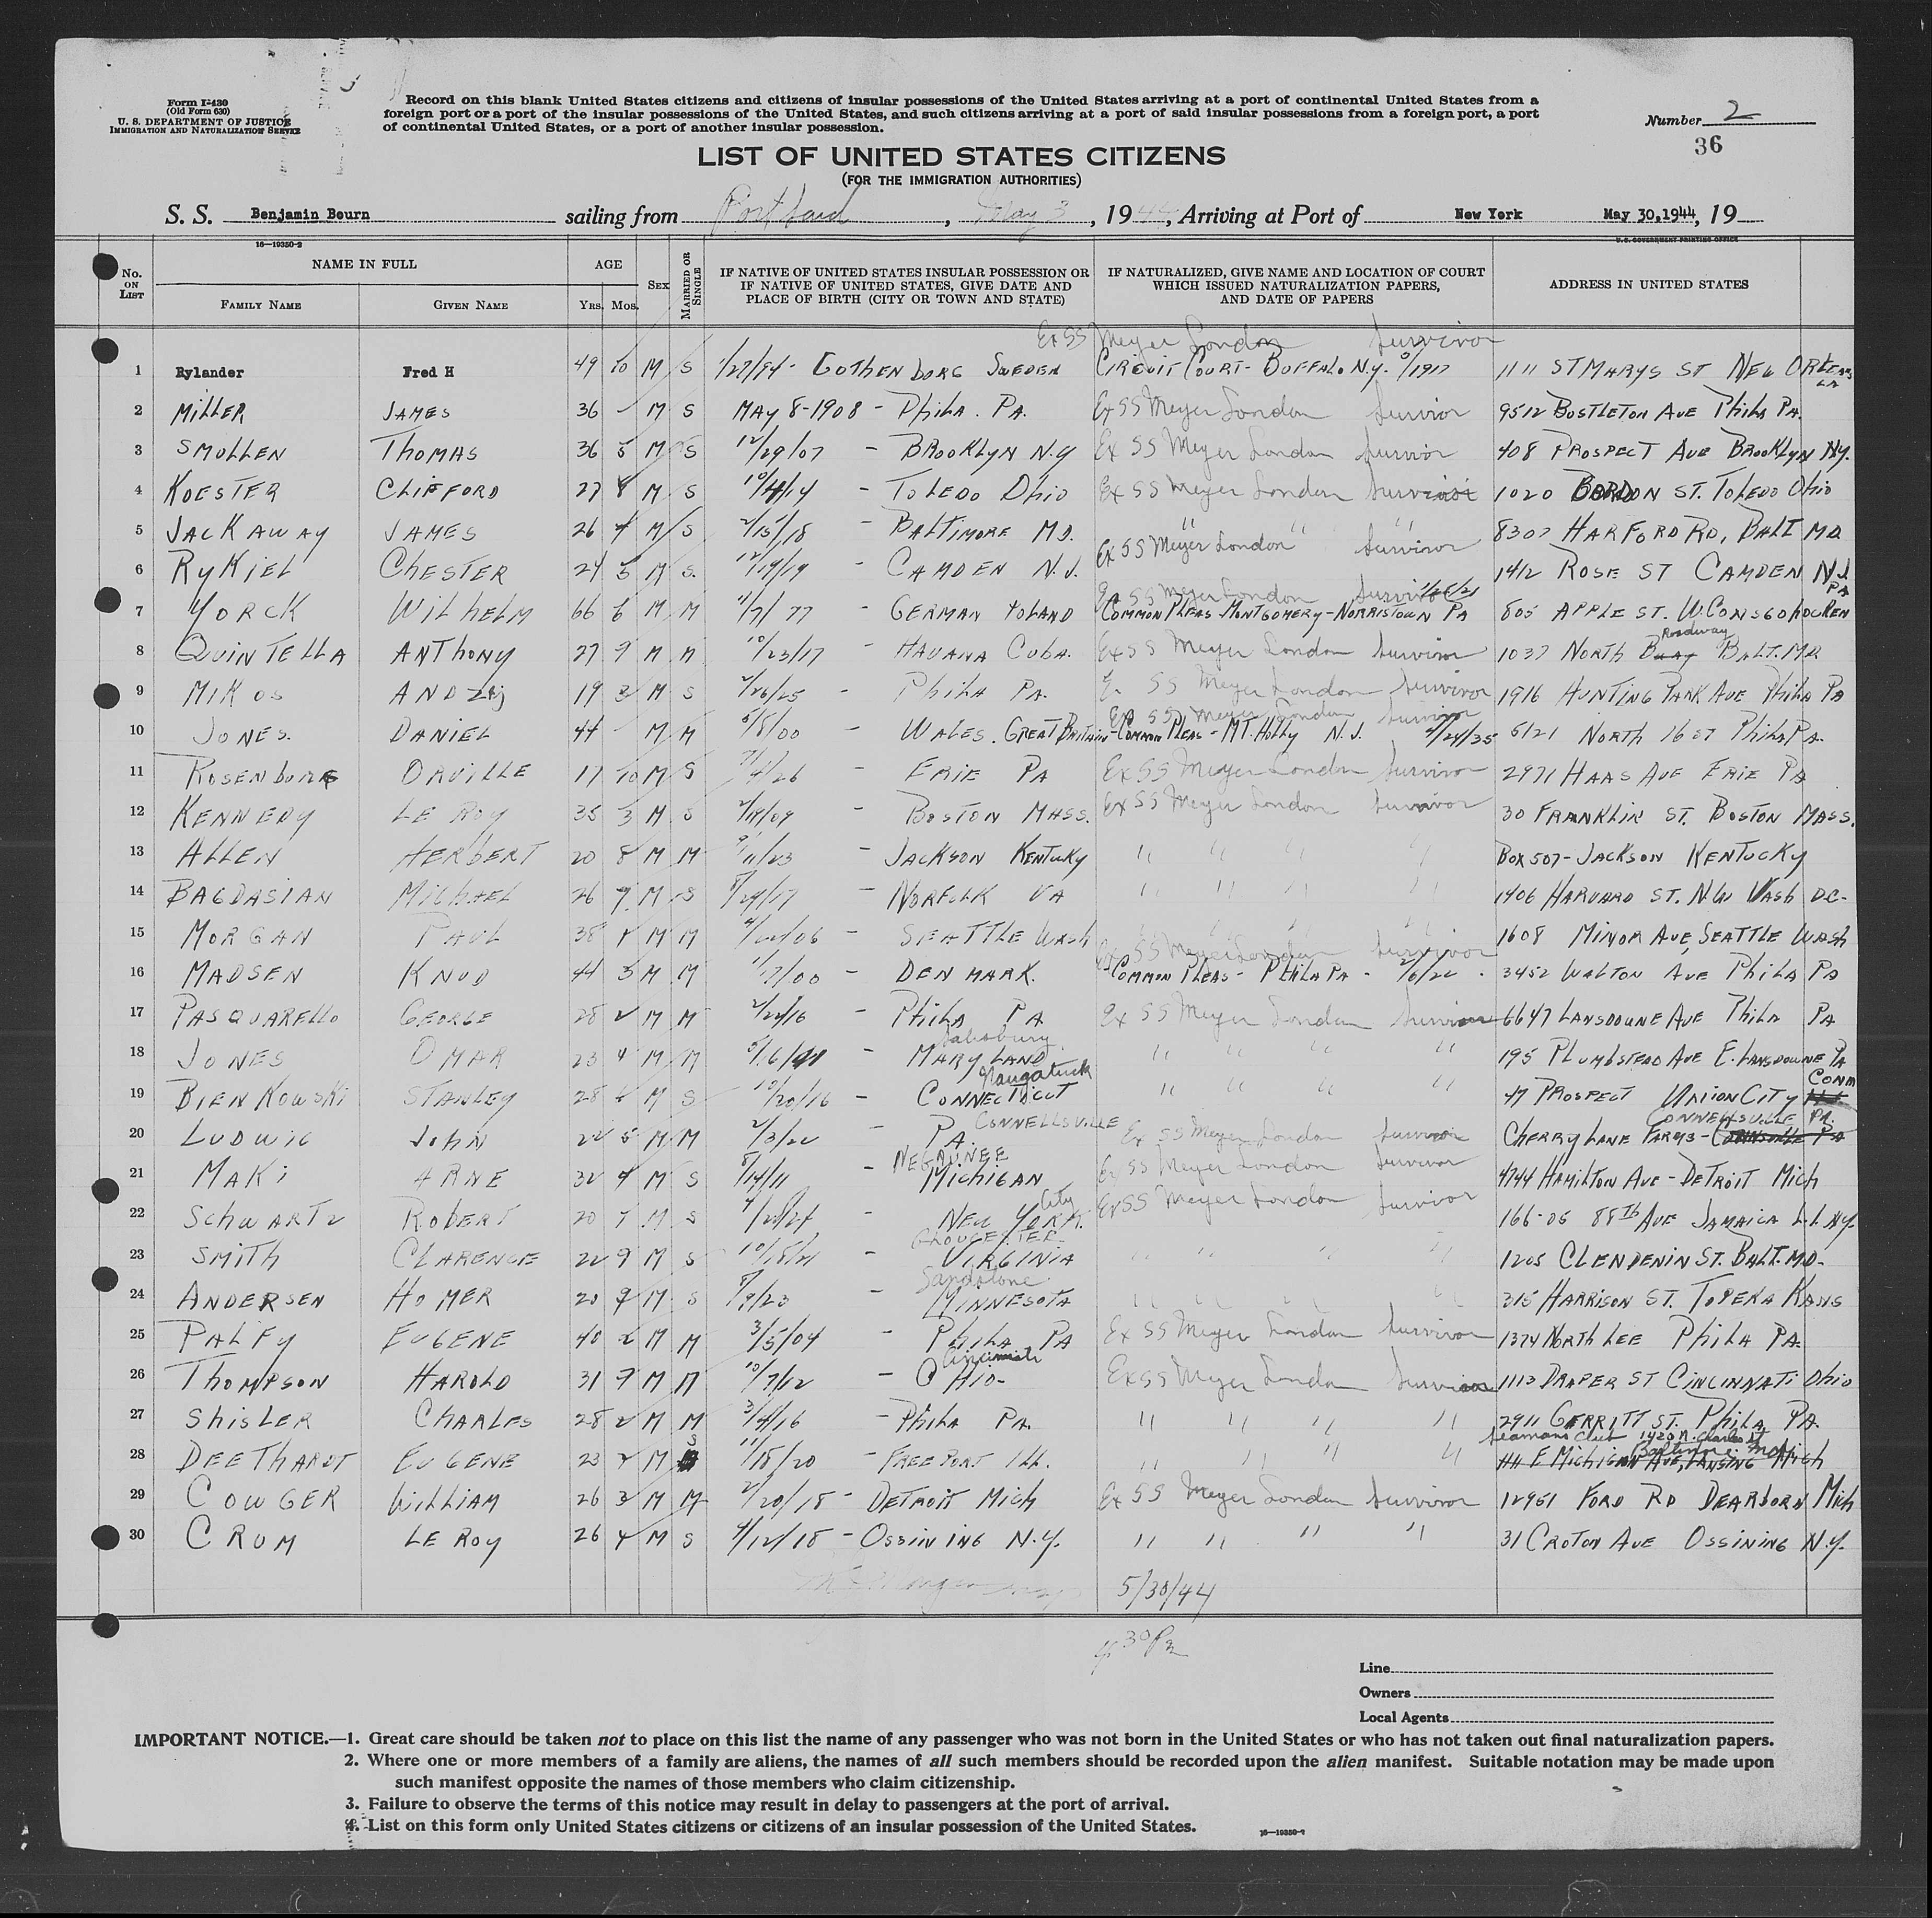 Form I-430
(Old Form 630)
U. S. DEPARTMENT OF JUSTICE
IMMIGRATION AND NATURALIZATION SERVICE
Record on this blank United States citizens and citizens of insular possessions of the United States arriving at a port of continental United States from a
foreign port or a port of the insular possessions of the United States, and such citizens arriving at a port of said insular possessions from a foreign port, a port
of continental United States, or a port of another insular possession.
Number 2
36
LIST OF UNITED STATES CITIZENS
(FOR THE IMMIGRATION AUTHORITIES)
S. S. Benjamin Bourn sailing from Port Said, May 3, 1944, Arriving at Port of New York May 30, 1944, 19
16—19350-2 U. S. GOVERNMENT PRINTING OFFICE
No. ON LIST NAME IN FULL AGE SEX MARRIED OR SINGLE IF NATIVE OF UNITED STATES INSULAR POSSESSION OR IF NATIVE OF UNITED STATES, GIVE DATE AND PLACE OF BIRTH (CITY OR TOWN AND STATE) IF NATURALIZED, GIVE NAME AND LOCATION OF COURT WHICH ISSUED NATURALIZATION PAPERS, AND DATE OF PAPERS ADDRESS IN UNITED STATES
FAMILY NAME GIVEN NAME YRS. MOS.
Ex SS Meyer London Survivor
1 Rylander Fred H 49 10 M S GOTHENBORG SWEDEN CIRCUIT COURT - BUFFALO N.Y. 1111 ST MARYS ST NEW ORLEANS LA
2 MILLER JAMES 36 - M S MAY 8-1908 - PHILA. PA. Ex SS Meyer London Survivor 9512 BUSTLETON AVE PHILA PA.
3 SMOLLEN THOMAS 36 5 M S 12/29/07 - BROOKLYN N.Y Ex SS Meyer London Survivor 408 PROSPECT AVE BROOKLYN N.Y.
4 KOESTER CLIFFORD M S - TOLEDO OHIO Ex SS Meyer London Survivor 1020 ST. TOLEDO Ohio
5 JACKAWAY JAMES 26 M S 2/15/18 - BALTIMORE MD. " " " 8307 HARFORD RD, BALT MD
6 RYKIEL CHESTER 24 5 M S. 12/19/19 - CAMDEN N.J. Ex SS Meyer London Survivor 1412 ROSE ST CAMDEN N.J.
Ex SS Meyer London Survivor
7 YORCK WILHELM 66 6 M M 11/7/77 - GERMAN POLAND COMMON PLEAS - MONTGOMERY - NORRISTOWN PA 805 APPLE ST. W. CONSGOHOCKEN PA
8 QUINTELLA ANTHONY M M 10/23/17 - HAVANA CUBA. Ex SS Meyer London Survivor 1037 NORTH Broadway BALT. MD
9 MIKOS 19 3 M S 2/26/25 - PHILA PA. Ex SS Meyer London Survivor 1916 HUNTING PARK AVE PHILA PA
Ex SS Meyer London Survivor
10 JONES. DANIEL 44 - M M 5/8/00 - WALES. GREAT BRITAIN - COMMON PLEAS - MT. HOLLY N.J. 2/24/35 NORTH 16 ST PHILA PA.
11 ORVILLE 17 10 M S 7/4/26 - ERIE PA Ex SS Meyer London Survivor 2971 HAAS AVE ERIE PA
12 KENNEDY LE ROY 35 3 M S - BOSTON MASS. Ex SS Meyer London Survivor 30 FRANKLIN ST. BOSTON MASS.
13 ALLEN HERBERT 20 8 M M 9/11/23 - JACKSON KENTUCKY " " " " BOX 507 - JACKSON KENTUCKY
14 BAGDASIAN MICHAEL 26 9 M S 8/29/17 - NORFOLK VA " " " " 1406 HARVARD ST. N.W WASH D.C.
15 MORGAN PAUL 38 M M - SEATTLE WASH " " " " 1608 MINOR AVE, SEATTLE WASH
Ex SS Meyer London Survivor
16 MADSEN KNUD 44 3 M M - DENMARK. COMMON PLEAS - PHILA PA - 3452 WALTON AVE PHILA PA
17 PASQUARELLO GEORGE 28 2 M M - PHILA PA Ex SS Meyer London Survivor 6647 LANSDOWNE AVE PHILA PA
18 JONES OMAR 23 4 M M - Salisbury MARYLAND " " " " 195 PLUMBSTEAD AVE E. LANSDOWNE PA
19 BIENKOWSKI STANLEY 28 M S - Naugatuck CONNECTICUT " " " " 47 PROSPECT UNION CITY CONN
20 LUDWIG JOHN 22 M M 2/3/22 - PA CONNELLSVILLE Ex SS Meyer London Survivor CHERRY LANE FARMS - CONNELLSVILLE PA.
21 MAKI ARNE 32 9 M S 8/14/11 - NEGAUNEE MICHIGAN Ex SS Meyer London Survivor 4744 HAMILTON AVE - DETROIT MICH
22 SCHWARTZ ROBERT 20 M S - NEW YORK City Ex SS Meyer London Survivor 166-05 88th AVE JAMAICA L.I. N.Y.
23 SMITH CLARENCE 22 9 M S - VIRGINIA " " " " 1205 CLENDENIN ST. BALT. MD-
24 ANDERSEN HOMER 20 9 M S 8/9/23 - Sandstone MINNESOTA " " " " 315 HARRISON ST. TOPEKA KANS
25 PALFY EUGENE 40 2 M M 3/5/04 - PHILA PA Ex SS Meyer London Survivor 1374 NORTH LEE PHILA PA.
26 THOMPSON HAROLD 31 9 M M - Cincinnati OHIO - Ex SS Meyer London Survivor 1113 DRAPER ST CINCINNATI Ohio
27 SHISLER CHARLES 28 2 M M 3/4/16 - PHILA PA. " " " " 2911 GERRITT ST. PHILA PA.
28 DEETHARDT EUGENE 23 M S - FREEPORT ILL. " " " " Seamans Club 1420 N. Charles St Baltimore Md
29 COWGER WILLIAM 26 3 M M 2/20/18 - DETROIT MICH Ex SS Meyer London Survivor 12961 FORD RD DEARBORN MICH
30 CRUM LE ROY 26 M S - OSSINING N.Y. " " " " 31 CROTON AVE OSSINING N.Y.
5/30/44
Line
Owners
Local Agents
IMPORTANT NOTICE.—1. Great care should be taken not to place on this list the name of any passenger who was not born in the United States or who has not taken out final naturalization papers.
2. Where one or more members of a family are aliens, the names of all such members should be recorded upon the alien manifest. Suitable notation may be made upon
such manifest opposite the names of those members who claim citizenship.
3. Failure to observe the terms of this notice may result in delay to passengers at the port of arrival.
4. List on this form only United States citizens or citizens of an insular possession of the United States.
16—19350-2